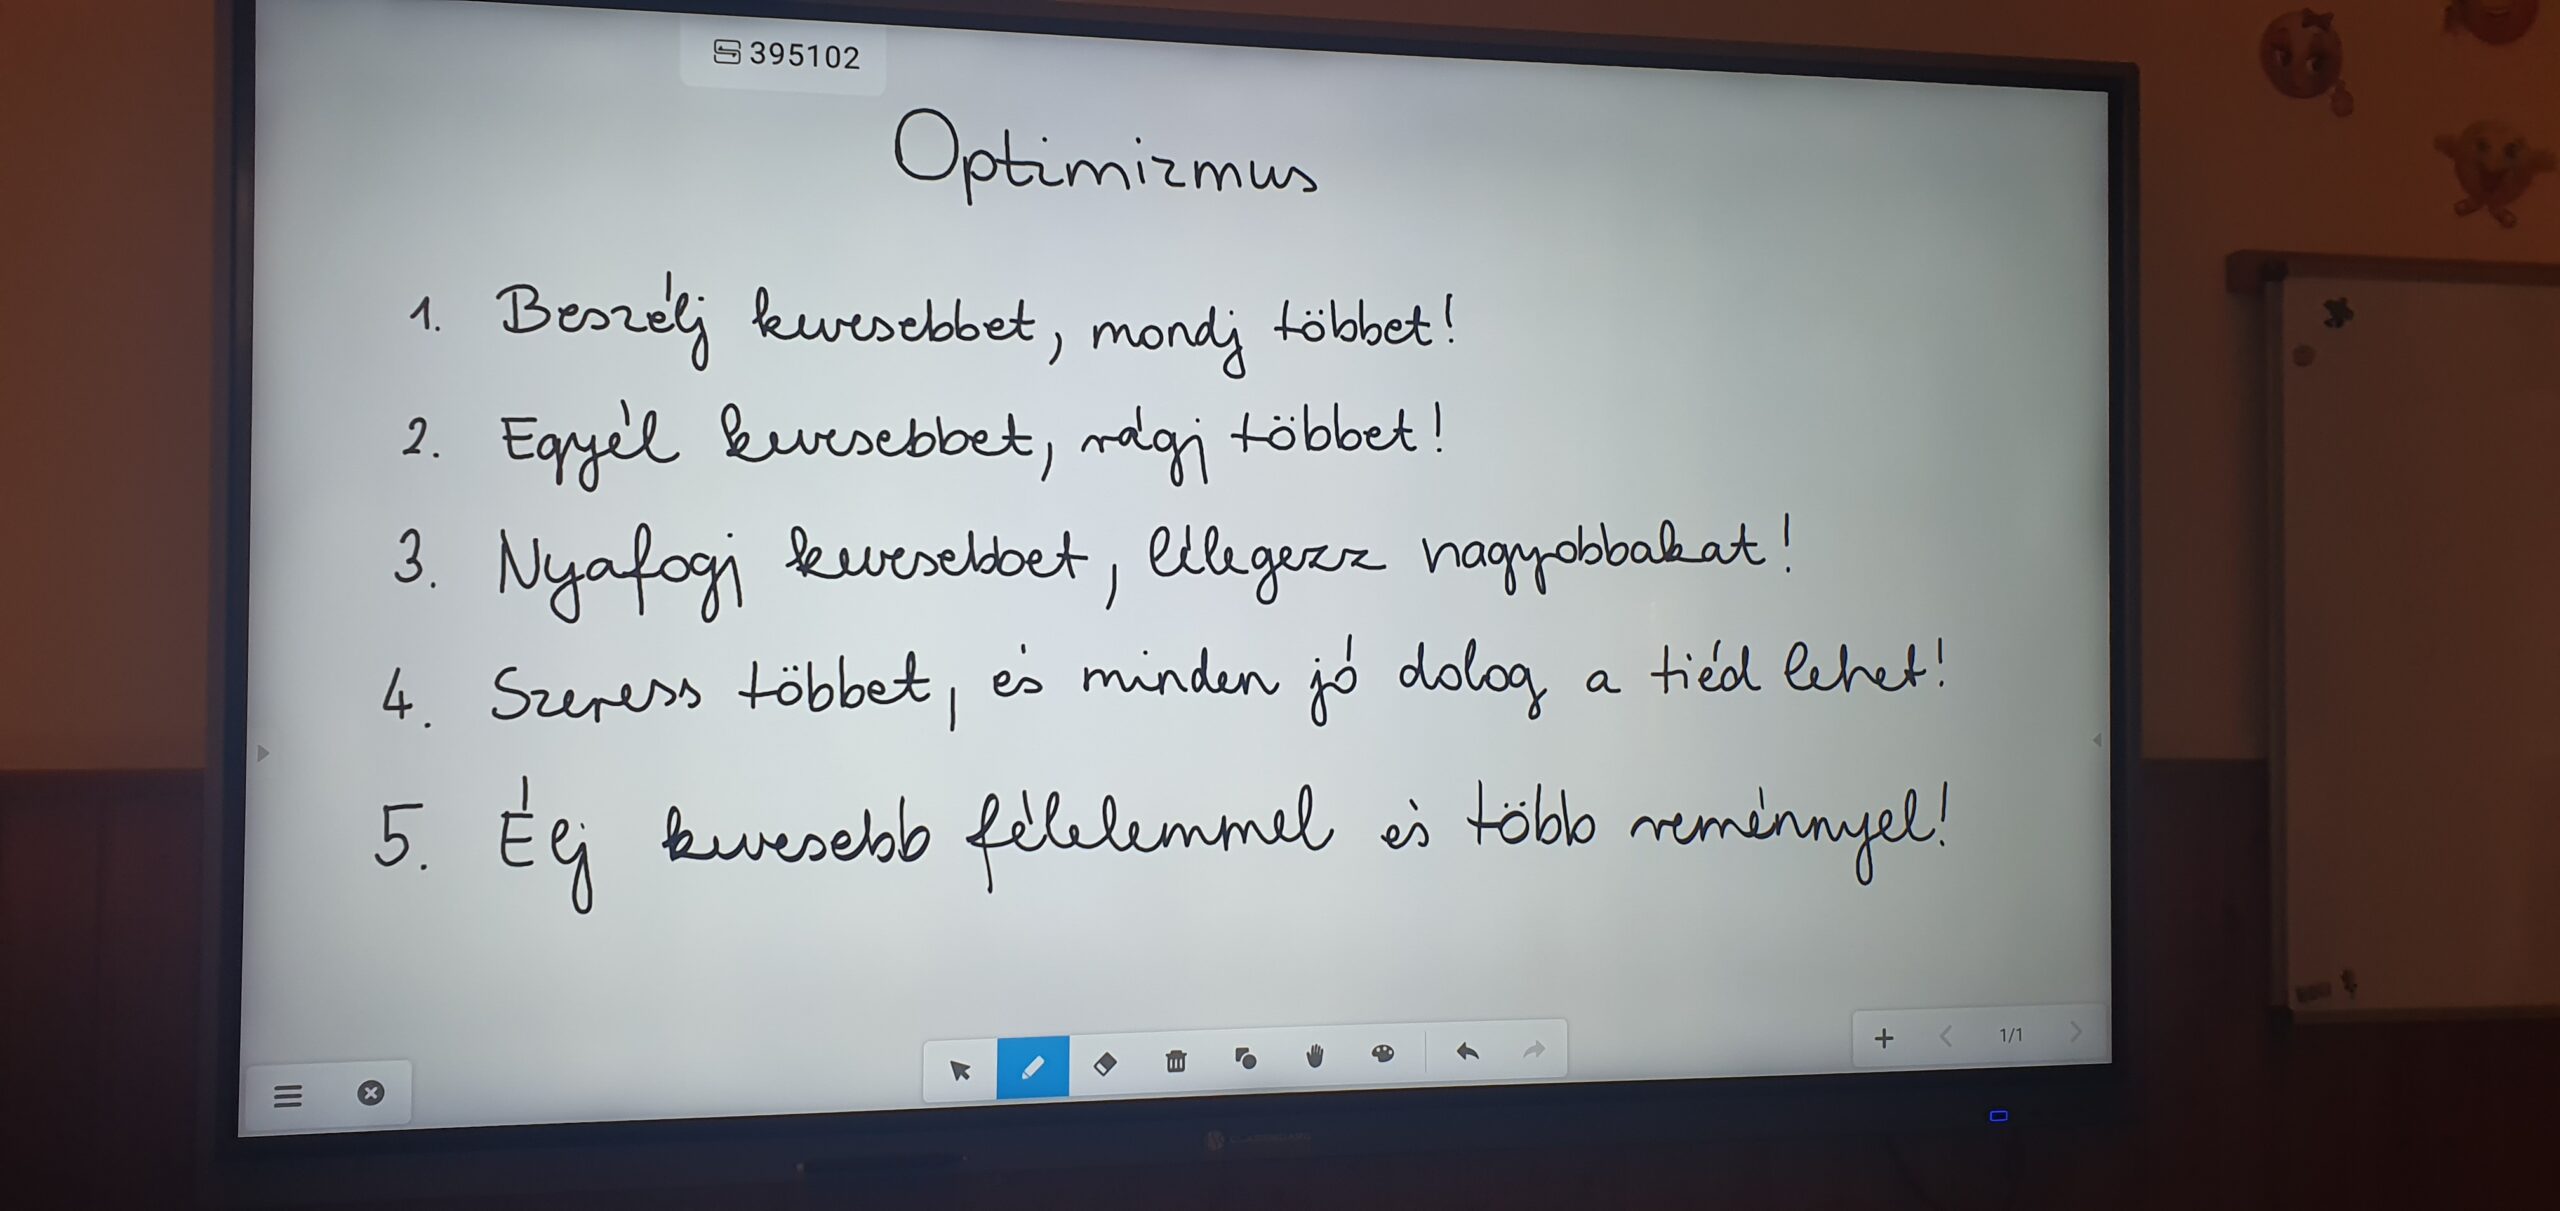 395102
Optimizmus
1. Beszélj kevesebbet, mondj többet!
2. Egyél kevesebbet, rágj többet!
3. Nyafogj kevesebbet, lélegezz nagyobbakat!
4. Szeress többet, és minden jó dolog a tiéd lehet!
5. Élj kevesebb félelemmel és több reménnyel!
1/1